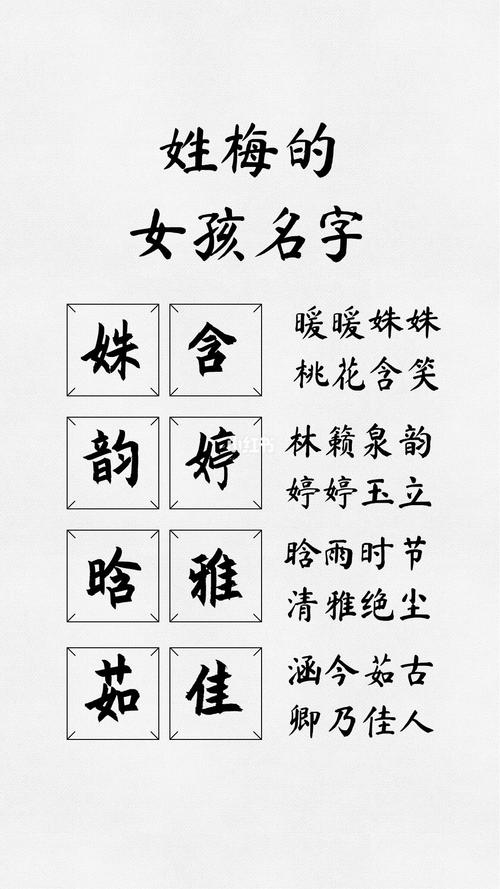 姓梅的
女孩名字
姝含
暖暖姝姝
桃花含笑
韵婷
林籁泉韵
婷婷玉立
晗雅
晗雨时节
清雅绝尘
茹佳
涵今茹古
卿乃佳人
小红书